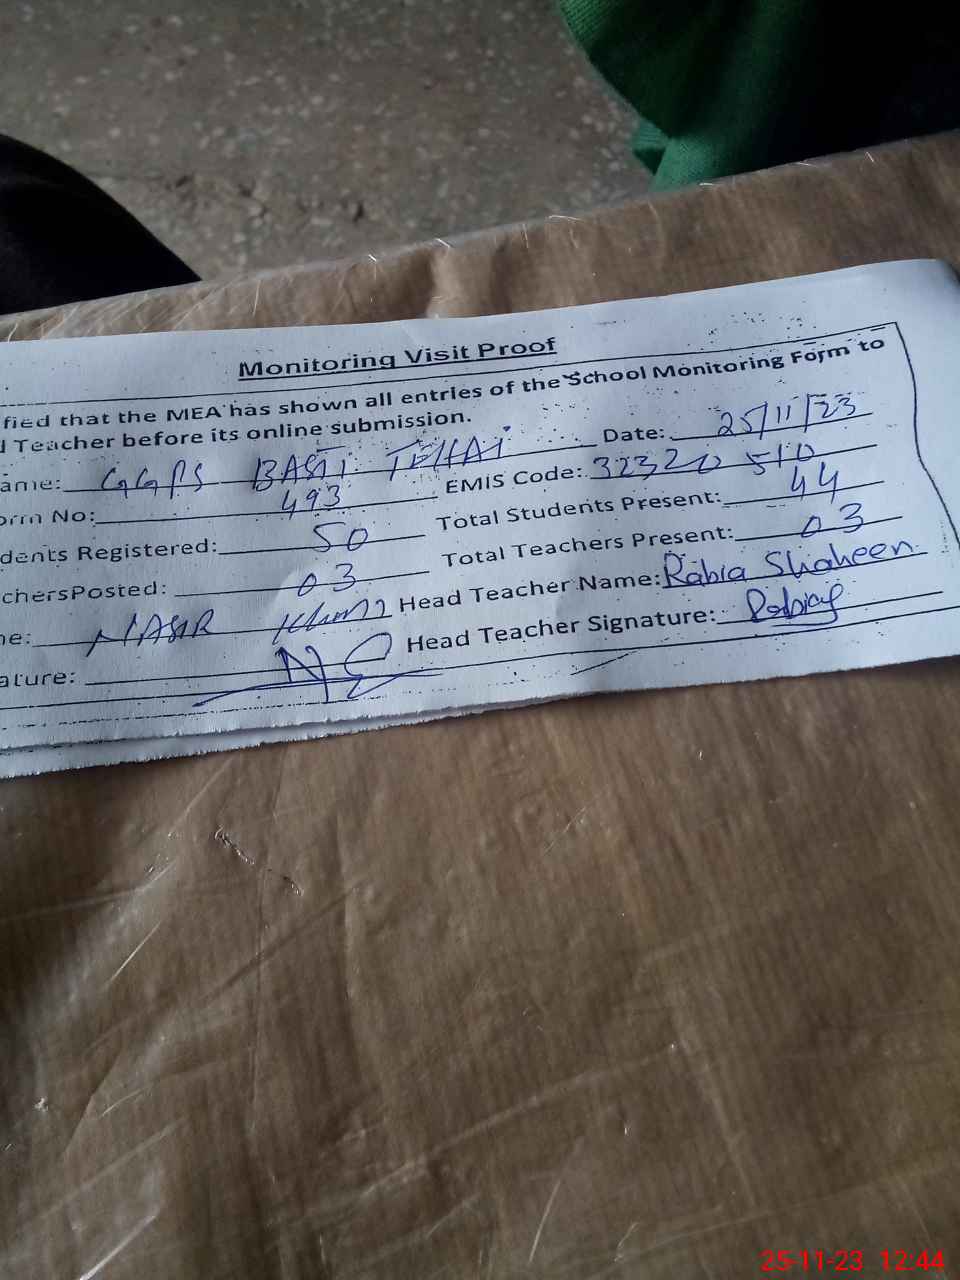 Monitoring Visit Proof
fied that the MEA has shown all entries of the School Monitoring Form to
d Teacher before its online submission.
ame: GGPS BASTI Date: 25/11/23
orm No: 493 EMIS Code: 32320 510
dents Registered: 50 Total Students Present: 44
chersPosted: 03 Total Teachers Present: 03
ne: NASIR Head Teacher Name: Rabia Shaheen
ature: Head Teacher Signature:
25-11-23 12:44